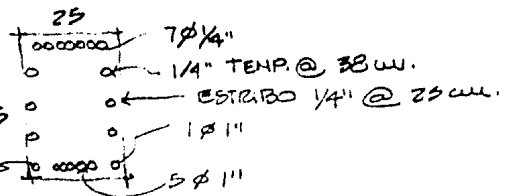 25
7Ø1/4"
1/4" TEMP. @ 38 cm.
ESTRIBO 1/4" @ 25 cm.
1 Ø 1"
5 Ø 1"